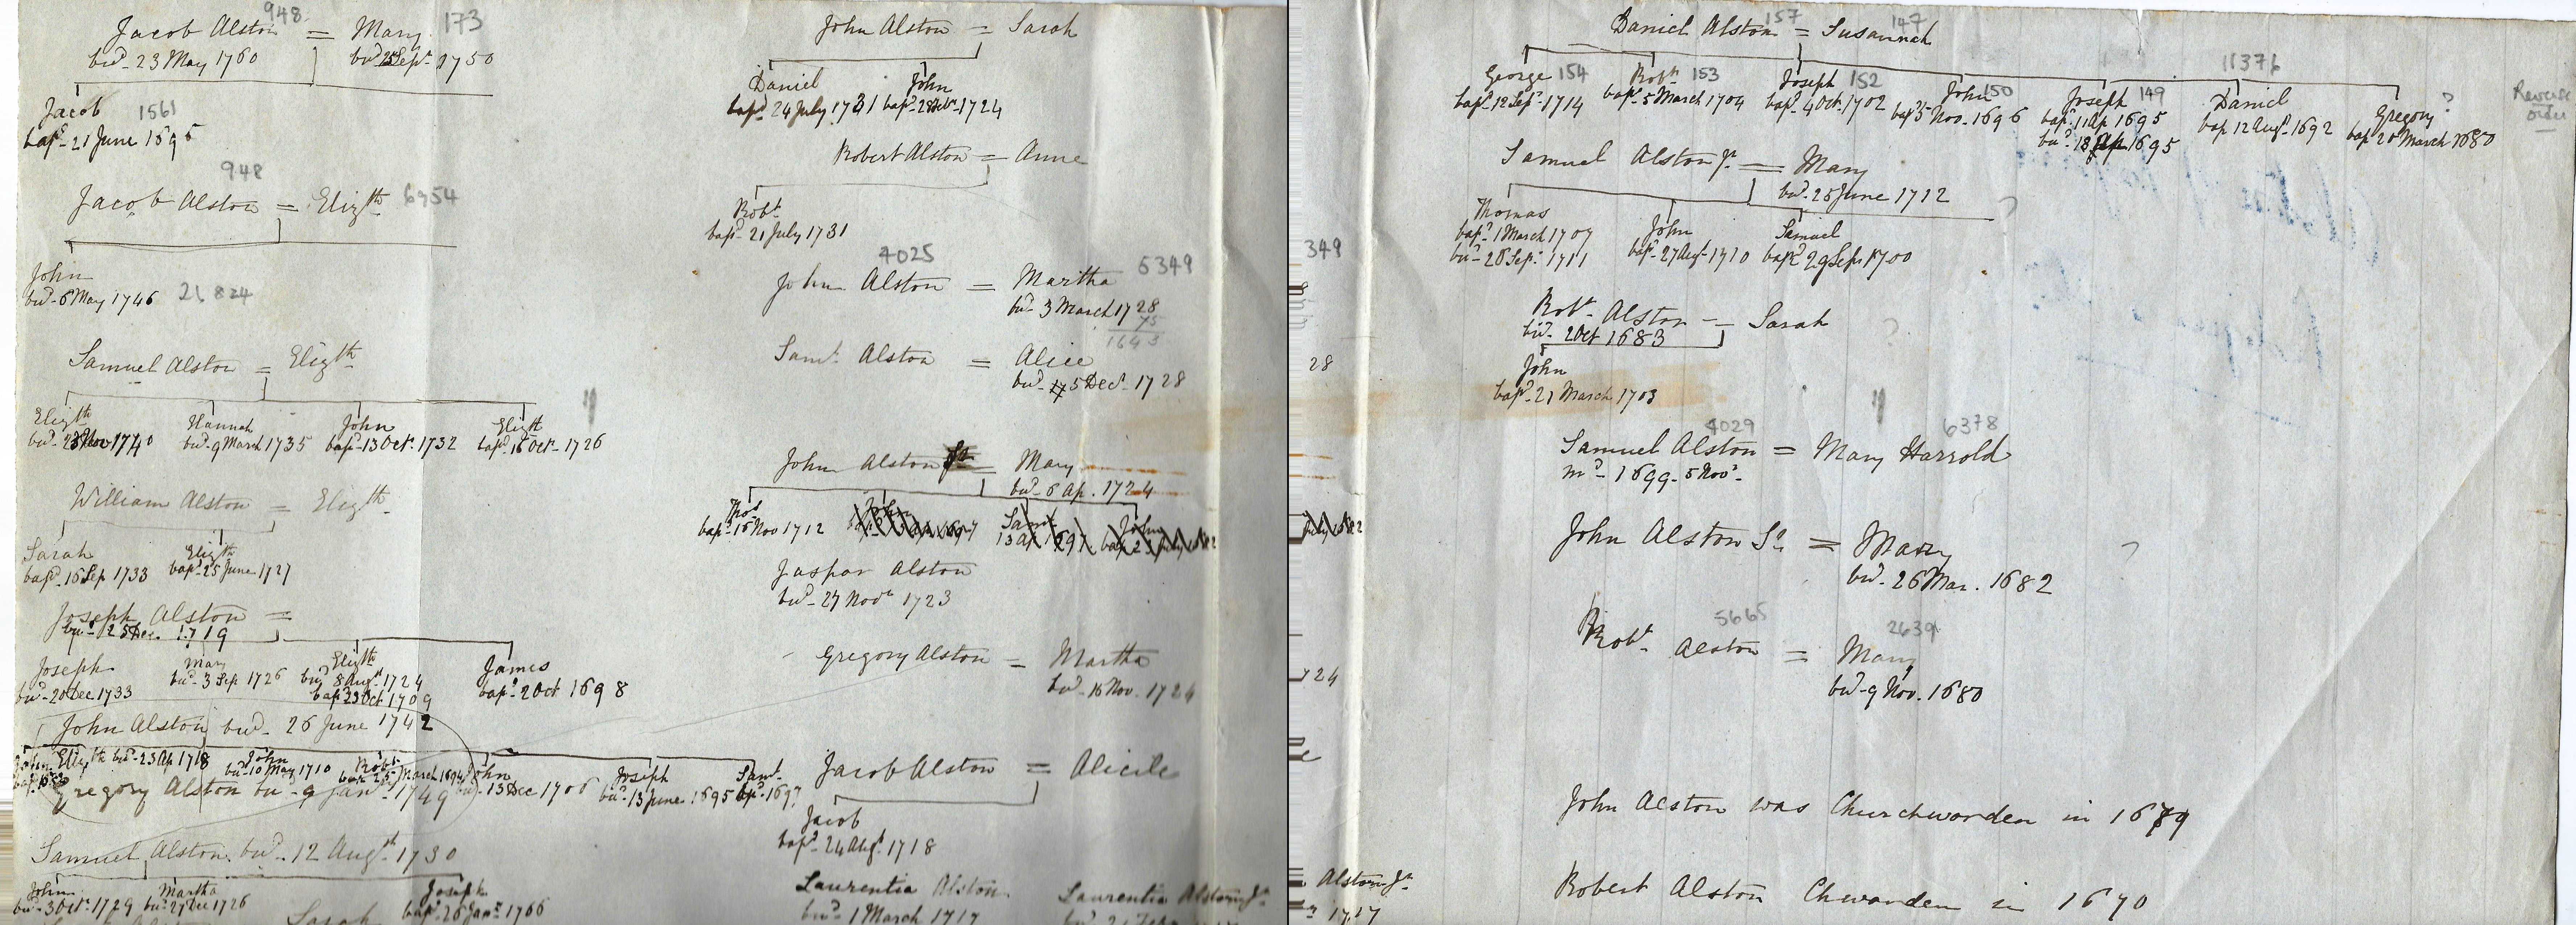 948 173
Jacob Alston = Mary
bu^d 23 May 1760 bu^d Sep^r 1750
Jacob 1561
bap^d 21 June 1695
948
Jacob Alston = Eliz^th 6954
John
bu^d 6 May 1746 21824
Samuel Alston = Eliz^th
Eliz^th Hannah John Eliz^th
bu^d 23 Nov 1740 bu^d 9 March 1735 bap^d 13 Oct^r 1732 bap^d 16 Oct^r 1726
William Alston = Eliz^th
Sarah Eliz^th
bap^d 16 Sep 1733 bap^d 25 June 1727
Joseph Alston =
bu^d 25 Dec 1719
Joseph Mary Eliz^th James
bu^d 20 Dec 1733 bu^d 3 Sep 1726 bu^d 8 Aug^st 1724 bap^d 2 Oct 1698
bap^d 23 Oct 1709
John Alston bu^d 26 June 1742
Eliz^th bu^d 23 Ap 1718 John Rob^t John Joseph Sam^l
bu^d 10 May 1710 March bu^d 13 Dec 1706 bu^d 13 June 1695 bap^d 1697
Gregory Alston bu^d 9 Jan^y 1749
Samuel Alston bu^d 12 Aug^st 1730
John Martha Joseph
bu^d 3 Oct^r 1729 bu^d 27 Dec 1726 bap^d 26 Jan^y 1706
Sarah
John Alston = Sarah
Daniel John
bap^d 24 July 1731 bap^d 28 1724
Robert Alston = Anne
Rob^t
bap^d 21 July 1731
4025 5349
John Alston = Martha
bu^d 3 March 1728
75
1643
Sam^l Alston = Alice
bu^d 5 Dec^r 1728
John Alston = Mary
bu^d 6 Ap. 1724
Tho^s John Sam^l John
bap^d 16 Nov 1712 13 Ap 1697
Jaspar Alston
bu^d 27 Nov^r 1723
Gregory Alston = Martha
bu^d 16 Nov. 1724
Jacob Alston = Alicile
Jacob
bap^d 24 Aug^t 1718
Laurentia Alston Laurentia Alston J^r
bu^d 1 March 1717
349
28
724
Alston J^r
1717
157 147
Daniel Alston = Susannah
11376
George 154 Rob^t 153 Joseph 152 John 150 Joseph 149 Daniel Gregory ?
bap^d 12 Sep^r 1714 bap^d 5 March 1704 bap^d 4 Oct. 1702 bap^d 5 Nov. 1696 bap^d 11 Ap 1695 bap 12 Aug^t 1692 bap 20 March 1680
bu^d 18 Ap 1695
Reverse
order
Samuel Alston J^r = Mary
bu^d 25 June 1712
?
Thomas John Samuel
bap^d 1 March 1707 bap^d 27 Aug^t 1710 bap^d 29 Sep^r 1700
bu^d 26 Sep^r 1711
Rob^t Alston = Sarah
bu^d 2 Oct 1683
?
John
bap^d 21 March 1703
4029 6378
Samuel Alston = Mary Harrold
m^d 1699 5 Nov^r
John Alston S^r = Mary
bu^d 26 Mar. 1682
?
5665 2639
Rob^t Alston = Mary
bu^d 9 Nov. 1680
John Alston was Churchwarden in 1679
Robert Alston Chwarden in 1670